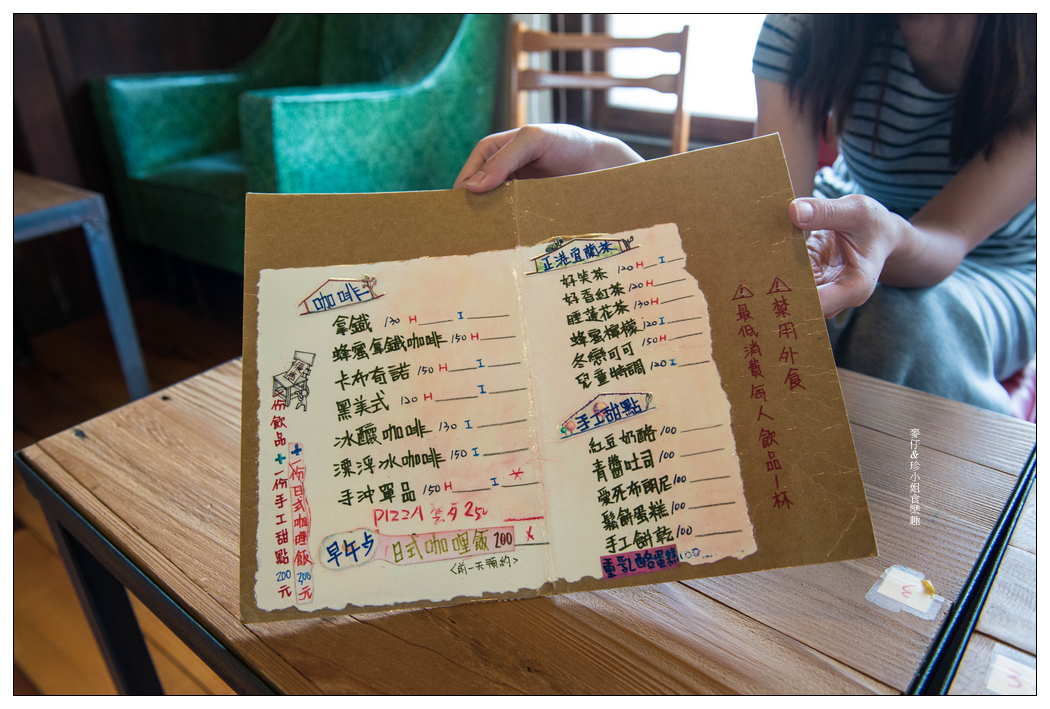 咖啡
拿鐵 130 H I
蜂蜜拿鐵咖啡 150 H
卡布奇諾 150 H I
黑美式 120 H I
冰釀咖啡 130 I
漂浮冰咖啡 150 I
手沖單品 150 H I
PIZZA 250
早午歺 日式咖哩飯 200
<前一天預約>
份飲品+一份手工甜點200元
+一份日式咖哩飯300元
正港宜蘭茶
好笑茶 120 H I
好香紅茶 120 H
睡蓮花茶 130 H
蜂蜜檸檬 120 I
冬戀可可 150 H
兒童特調 120 I
手工甜點
紅豆奶酪 100
青醬吐司 100
愛死布朗尼 100
鬆餅蛋糕 100
手工餅乾 100
重乳酪蛋糕 100
禁用外食
最低消費每人飲品一杯
麥仔&珍小姐食樂趣
3
3